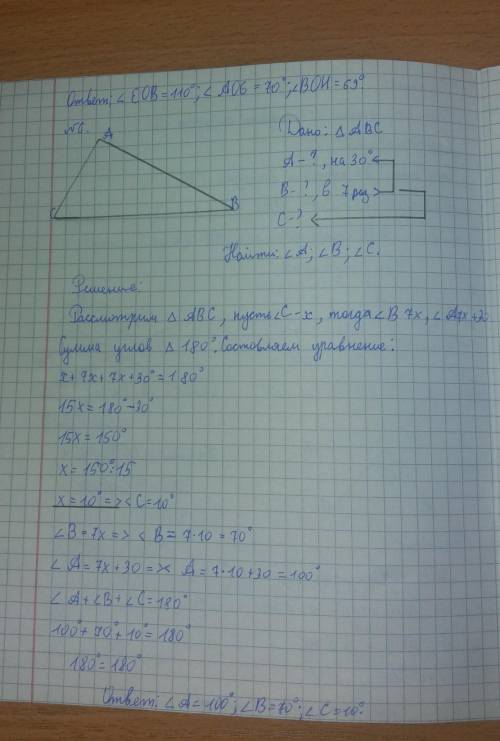 Ответ: ∠EOB=110°; ∠AOG=70°; ∠BOH=69°
№6.
A
B
C
Дано: △ABC
A-?, на 30°<
B-?, в 7 раз>
C-?
Найти: ∠A; ∠B; ∠C.
Решение:
Рассмотрим △ABC, пусть ∠C-x, тогда ∠B 7x, ∠A7x+30
Сумма углов △ 180°. Составляем уравнение:
x+7x+7x+30°=180°
15x=180°-30°
15x=150°
x=150°:15
x=10° => <C=10°
∠B=7x => <B=7·10=70°
∠A=7x+30 => <A=7·10+30=100°
∠A+∠B+∠C=180°
100°+70°+10°=180°
180°=180°
Ответ: ∠A=100°; ∠B=70°; ∠C=10°.